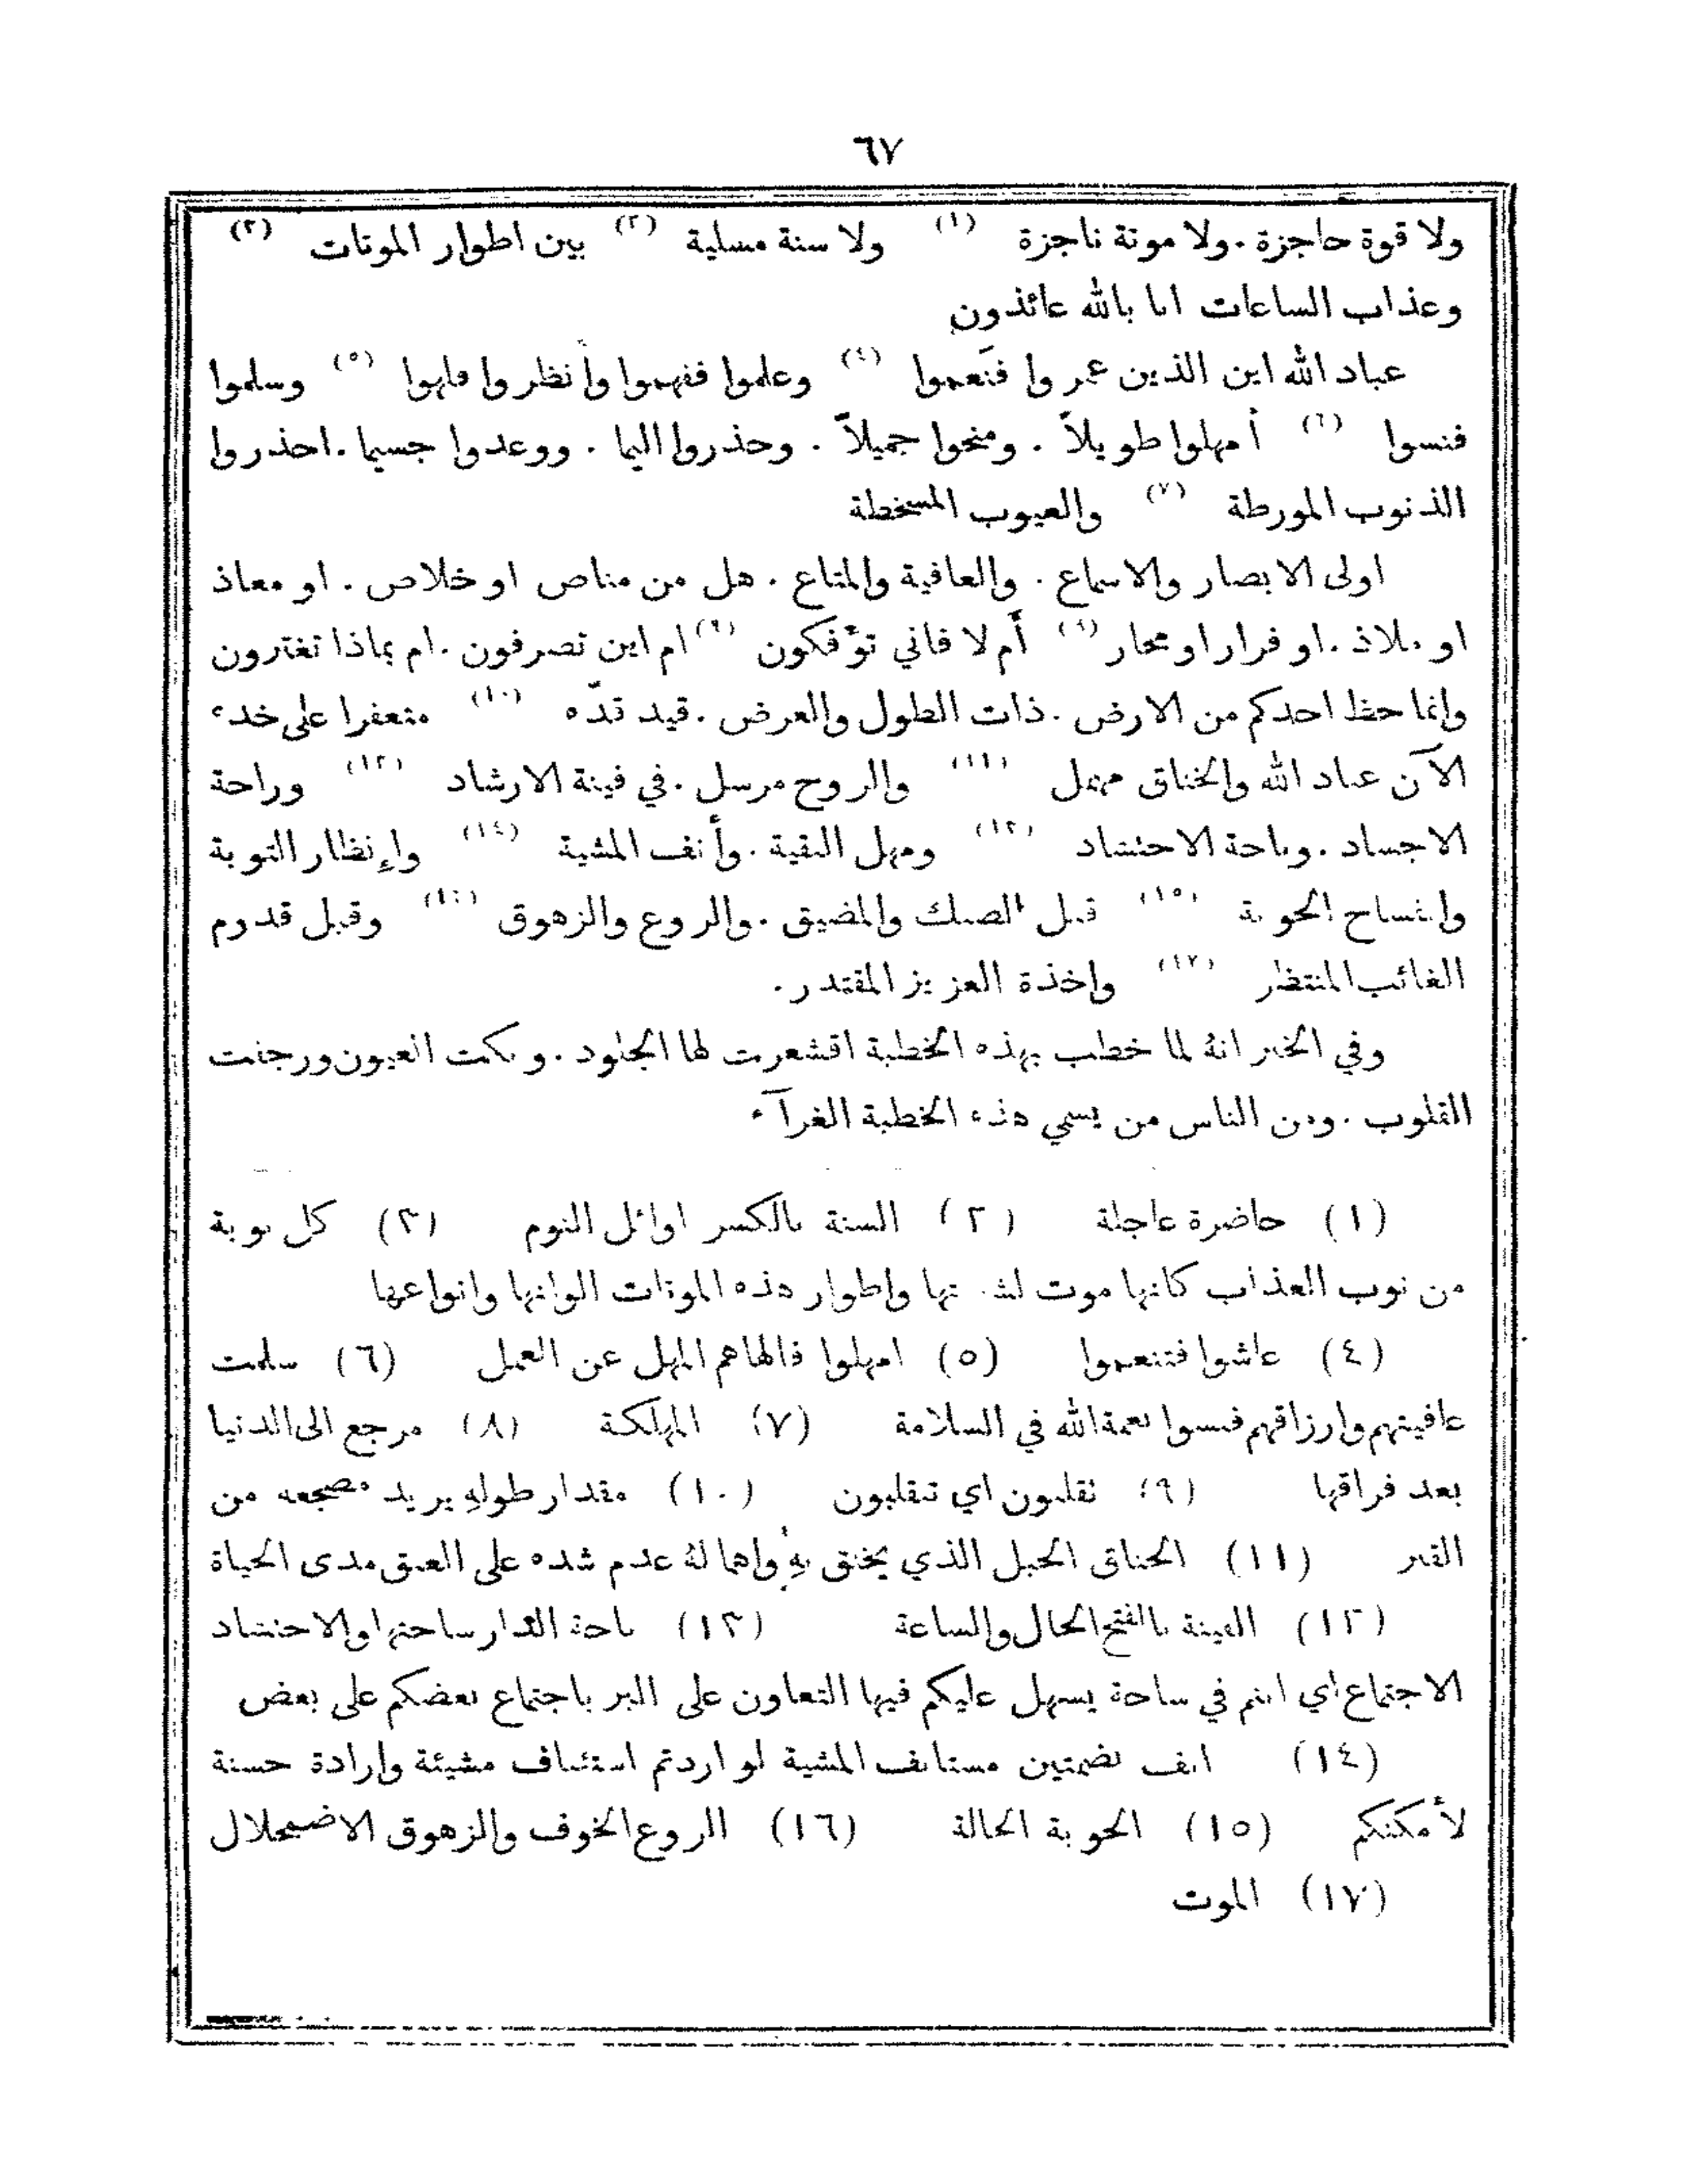 ٦٧
ولا قوة حاجزة . ولا موتة ناجزة (١) ولا سنة مسلية (٢) بين اطوار الموتات (٣)
وعذاب الساعات انا بالله عائذون
عباد الله اين الذين عمروا فنَعموا (٤) وعلموا ففهموا وأنظروا فلهوا (٥) وسلموا
فنسوا (٦) أمهلوا طويلاً . ومنحوا جميلاً . وحذروا اليما . ووعدوا جسيما . احذروا
الذنوب المورطة (٧) والعيوب المسخطة
اولى الابصار والاسماع . والعافية والمتاع . هل من مناص او خلاص . او معاذ
او ملاذ . او فرار او محار (٨) أم لا فاني تؤفكون (٩) ام اين تصرفون . ام بماذا تغترون
وانما حظ احدكم من الارض . ذات الطول والعرض . قيد قدّه (١٠) متعفرا على خده
الآن عباد الله والخناق مهمل (١١) والروح مرسل . في فينة الارشاد (١٢) وراحة
الاجساد . وباحة الاحتشاد (١٣) ومهل البقية . وأنف المشية (١٤) وإنظار التوبة
وانفساح الحوبة (١٥) قبل الضنك والمضيق . والروع والزهوق (١٦) وقبل قدوم
الغائب المنتظر (١٧) واخذة العزيز المقتدر .
وفي الخبر انهُ لما خطب بهذه الخطبة اقشعرت لها الجلود . وبكت العيون ورجفت
القلوب . ومن الناس من يسمي هذه الخطبة الغرآء
(١) حاضرة عاجلة (٢) السنة بالكسر اوائل النوم (٣) كل نوبة
من نوب العذاب كانها موت لشدتها واطوار هذه الموتات الوانها وانواعها
(٤) عاشوا فتنعموا (٥) امهلوا فالهاهم المهل عن العمل (٦) سلمت
عافيتهم وارزاقهم فنسوا نعمة الله في السلامة (٧) المهلكة (٨) مرجع الى الدنيا
بعد فراقها (٩) تقلبون اي تنقلبون (١٠) مقدار طولهِ يريد مضجعه من
القبر (١١) الخناق الحبل الذي يخنق بهِ واهمالهُ عدم شده على العنق مدى الحياة
(١٢) الفينة بالفتح الحال والساعة (١٣) باحة الدار ساحتها والاحتشاد
الاجتماع اي انتم في ساحة يسهل عليكم فيها التعاون على البر باجتماع بعضكم على بعض
(١٤) انف بضمتين مستانف المشية لو اردتم استئناف مشيئة وارادة حسنة
لأمكنكم (١٥) الحوبة الحالة (١٦) الروع الخوف والزهوق الاضمحلال
(١٧) الموت